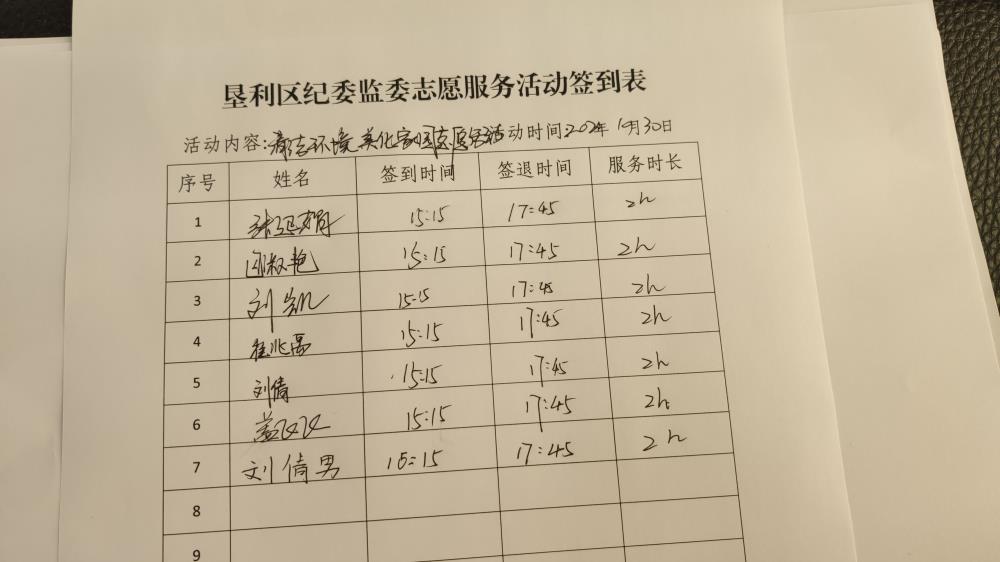 垦利区纪委监委志愿服务活动签到表
活动内容:清洁环境 美化家园志愿活动 活动时间:2024年10月30日
序号 姓名 签到时间 签退时间 服务时长
1 15:15 17:45 2h
2 15:15 17:45 2h
3 刘凯 15:15 17:45 2h
4 崔兆禹 15:15 17:45 2h
5 刘倩 15:15 17:45 2h
6 15:15 17:45 2h
7 刘倩男 15:15 17:45 2h
8
9